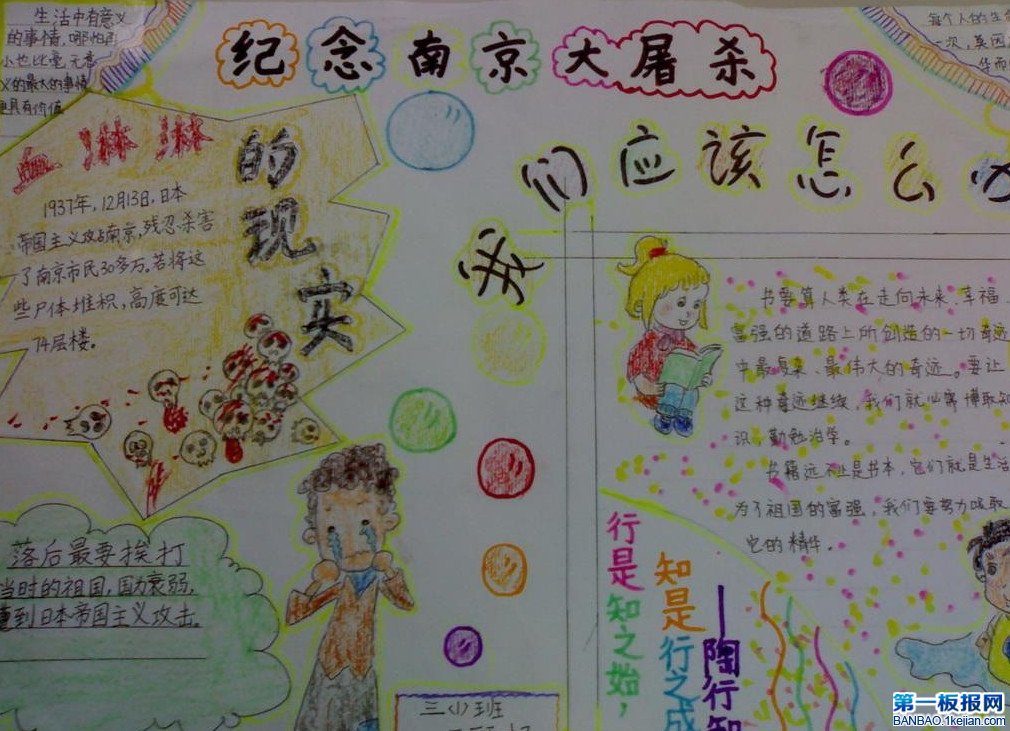 生活中有意义
的事情,哪怕再
小也比毫无意
义的最大的事情
更具有价值
纪念南京大屠杀
每个人的生
一次,莫因
华而
血淋淋
的现实
1937年,12月13日,日本
帝国主义攻占南京,残忍杀害
了南京市民30多万。若将这
些尸体堆积,高度可达
74层楼。
我们应该怎么办
书要算人类在走向未来、幸福、
富强的道路上所创造的一切奇迹
中最复杂、最伟大的奇迹。要让
这种奇迹继续,我们就必需博取知
识,勤勉治学。
书籍远不止是书本,它们就是生活
为了祖国的富强,我们要努力吸取
它的精华。
落后最要挨打
当时的祖国,国力衰弱,
遭到日本帝国主义攻击。
行是知之始,
知是行之成
——陶行知
三(1)班
第一板报网
BANBAO.1kejian.com